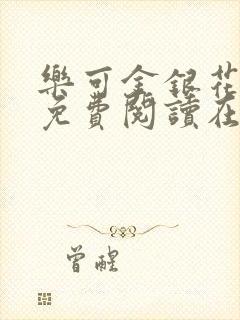 樂可金銀花
免費閱讀在
曾醒